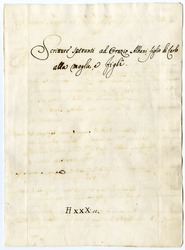 Scritture spettanti ad Orazio Albani figlio di Carlo
alla moglie, e figli.
H xxX